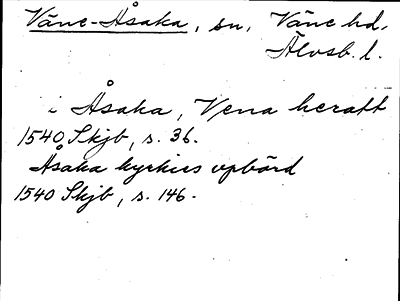 Väne-Åsaka, sn, Väne hd,
Älvsb. l.
i Åsaka, Vena heratt
1540 Skjb, s. 36.
Åsaka kyrkies upbörd
1540 Skjb, s. 146.